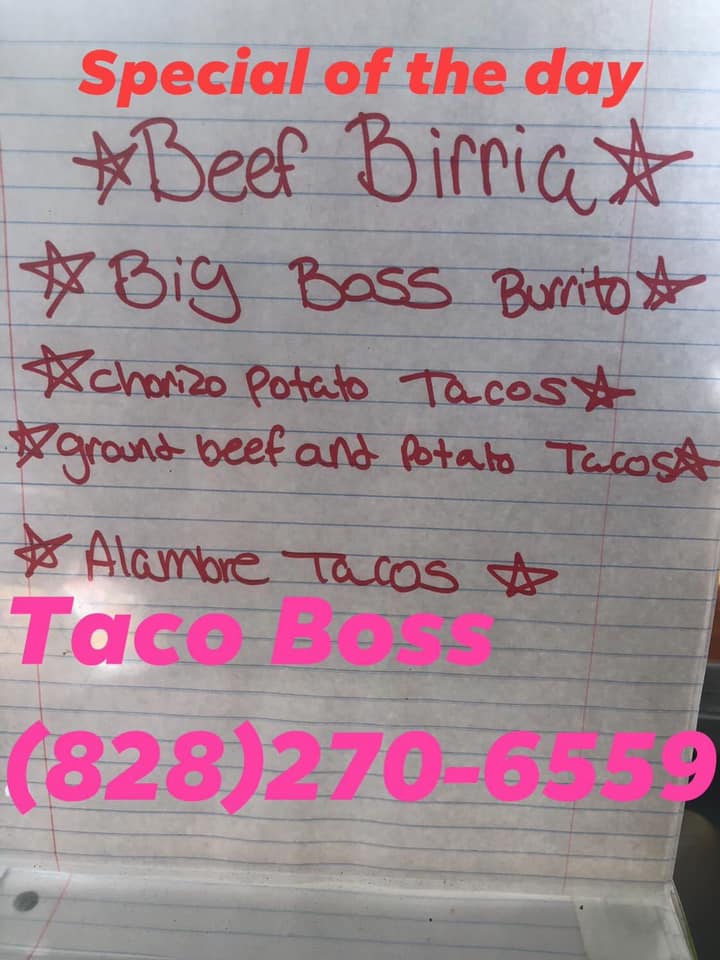 Special of the day
Beef Birria
Big Boss Burrito
chorizo potato Tacos
ground beef and Potato Tacos
Alambre Tacos
Taco Boss
(828)270-6559